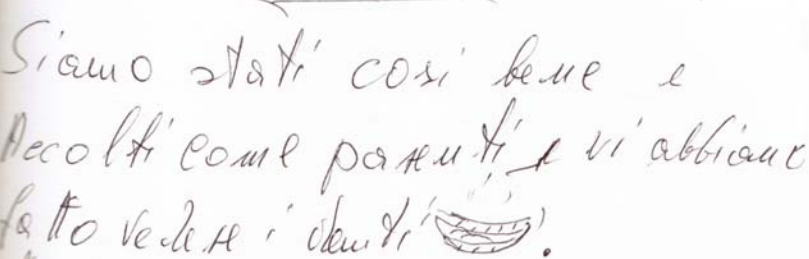 Siamo stati così bene e
Accolti come parenti e vi abbiamo
fatto vedere i denti.